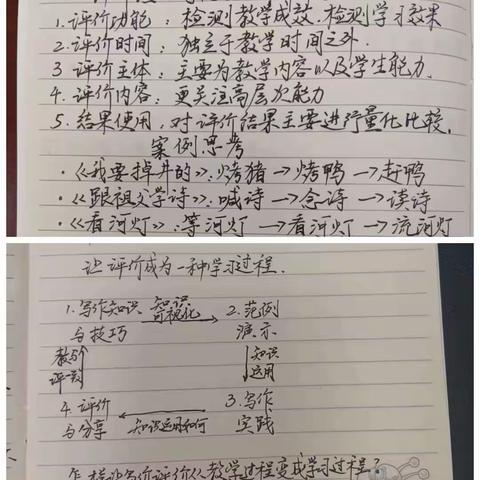 1.评价功能：检测教学成效.检测学习效果
2.评价时间：独立于教学时间之外.
3 评价主体：主要为教学内容以及学生能力.
4.评价内容：更关注高层次能力
5.结果使用,对评价结果主要进行量化比较.
案例思考
·《我要掉井的》:烤猪→烤鸭→赶鸭
·《跟祖父学诗》:喊诗→念诗→读诗
·《看河灯》:等河灯→看河灯→流河灯
让评价成为一种学习过程.
1.写作知识与技巧
知识可视化
2.范例演示
教学评一致
知识运用
4.评价与分享
知识运用如何
3.写作实践
怎样让写作评价从教学过程变成学习过程?